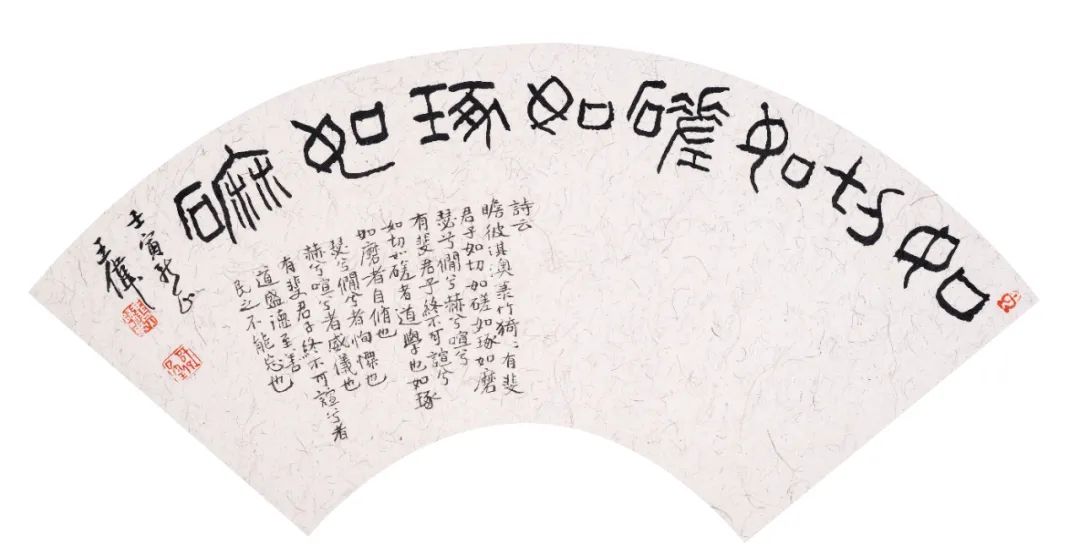 如切如磋如琢如磨
詩云
瞻彼淇澳菉竹猗〻有斐
君子如切如磋如琢如磨
瑟兮僩兮赫兮喧兮
有斐君子終不可諠兮
如切如磋者道學也如琢
如磨者自脩也
瑟兮僩兮者恂慄也
赫兮喧兮者威儀也
有斐君子終不可諠兮者
道盛德至善
民之不能忘也
壬寅
王偉